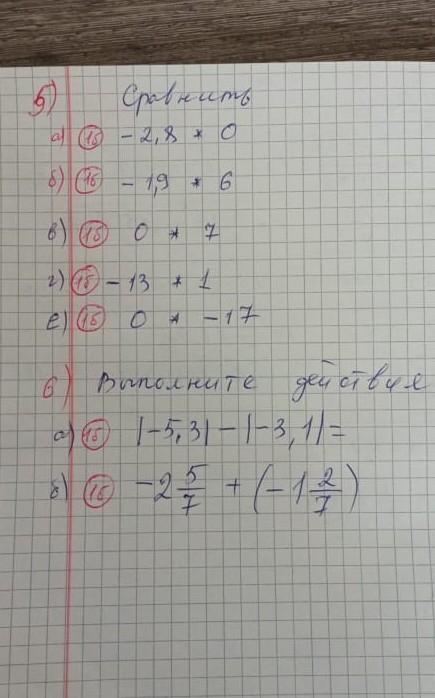 5) Сравнить
а) 1б -2,8 * 0
б) 1б -1,9 * 6
в) 1б 0 * 7
г) 1б -13 * 1
е) 1б 0 * -17
6) Выполните действия
а) 1б |-5,3| - |-3,1| =
б) 1б -2 5/7 + (-1 2/7)